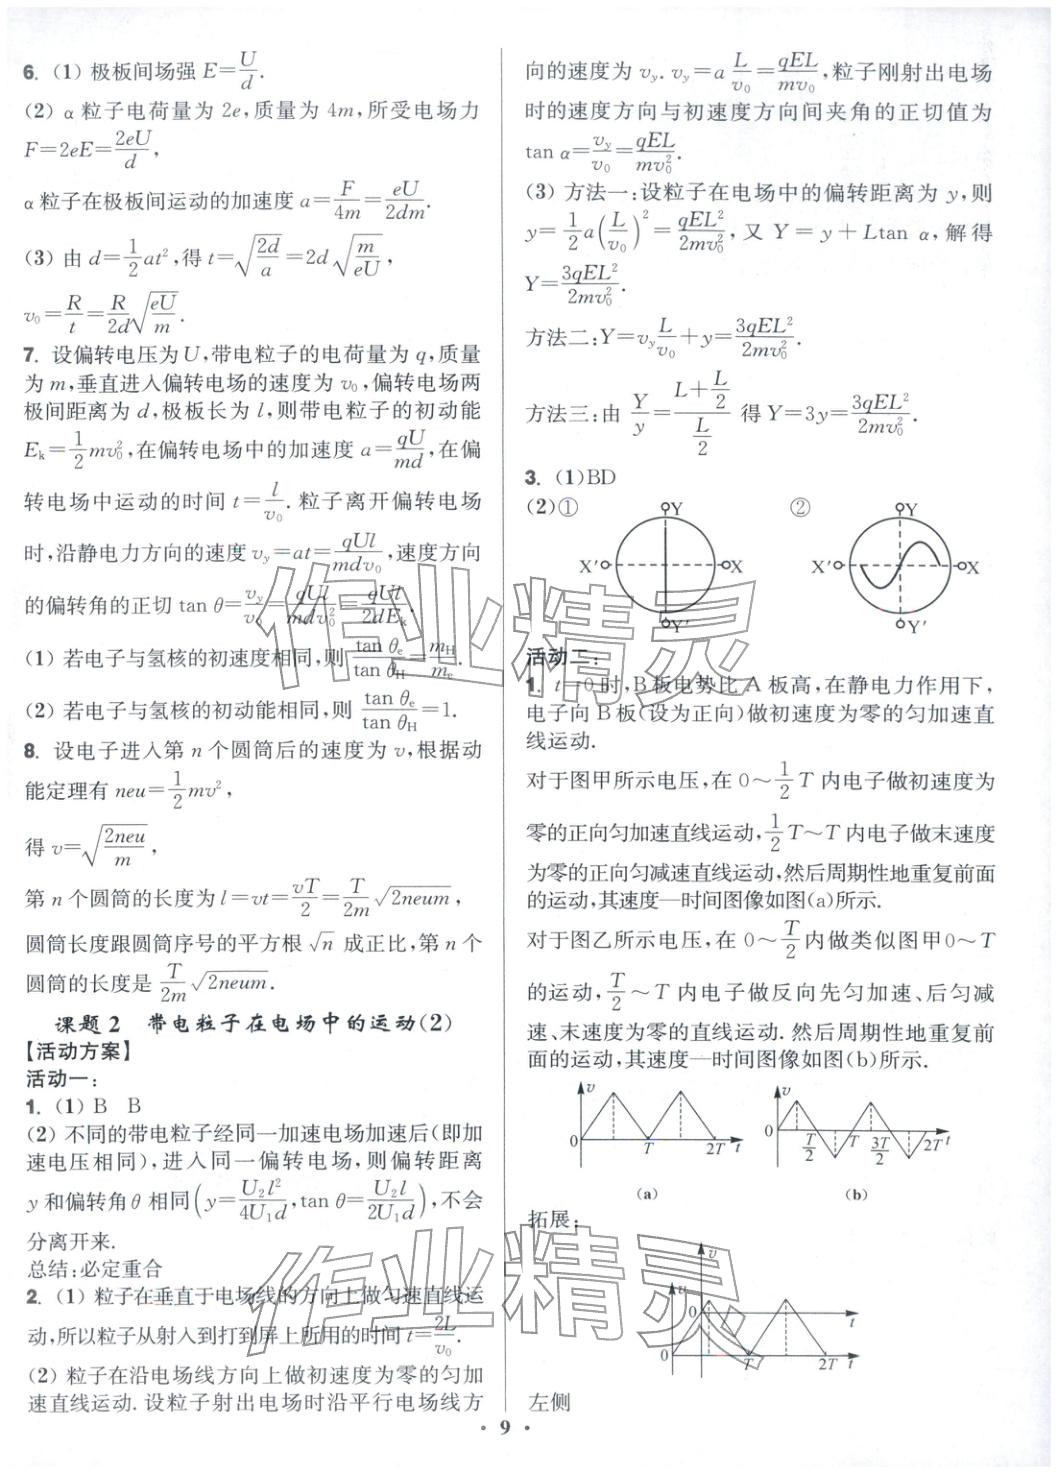 6. (1) 极板间场强 E=U/d.
(2) α 粒子电荷量为 2e,质量为 4m,所受电场力
F=2eE=2eU/d,
α 粒子在极板间运动的加速度 a=F/4m=eU/2dm.
(3) 由 d=1/2at²,得 t=√(2d/a)=2d√(m/eU),
v₀=R/t=R/2d√(eU/m).
7. 设偏转电压为 U,带电粒子的电荷量为 q,质量
为 m,垂直进入偏转电场的速度为 v₀,偏转电场两
极间距离为 d,极板长为 l,则带电粒子的初动能
Eₖ=1/2mv₀²,在偏转电场中的加速度 a=qU/md,在偏
转电场中运动的时间 t=l/v₀. 粒子离开偏转电场
时,沿静电力方向的速度 v_y=at=qUl/mdv₀,速度方向
的偏转角的正切 tan θ=v_y/v₀=qUl/mdv₀²=qUl/2dEₖ.
(1) 若电子与氢核的初速度相同,则 tan θₑ/tan θ_H=m_H/mₑ.
(2) 若电子与氢核的初动能相同,则 tan θₑ/tan θ_H=1.
8. 设电子进入第 n 个圆筒后的速度为 v,根据动
能定理有 neu=1/2mv²,
得 v=√(2neu/m),
第 n 个圆筒的长度为 l=vt=vT/2=T/2m√(2neum),
圆筒长度跟圆筒序号的平方根 √n 成正比,第 n 个
圆筒的长度是 T/2m√(2neum).
课题 2 带电粒子在电场中的运动(2)
【活动方案】
活动一:
1. (1) B B
(2) 不同的带电粒子经同一加速电场加速后(即加
速电压相同),进入同一偏转电场,则偏转距离
y 和偏转角 θ 相同(y=U₂l²/4U₁d,tan θ=U₂l/2U₁d),不会
分离开来.
总结:必定重合
2. (1) 粒子在垂直于电场线的方向上做匀速直线运
动,所以粒子从射入到打到屏上所用的时间 t=2L/v₀.
(2) 粒子在沿电场线方向上做初速度为零的匀加
速直线运动. 设粒子射出电场时沿平行电场线方
向的速度为 v_y. v_y=a L/v₀=qEL/mv₀,粒子刚射出电场
时的速度方向与初速度方向间夹角的正切值为
tan α=v_y/v₀=qEL/mv₀².
(3) 方法一:设粒子在电场中的偏转距离为 y,则
y=1/2a(L/v₀)²=qEL²/2mv₀²,又 Y=y+Ltan α,解得
Y=3qEL²/2mv₀².
方法二:Y=v_y L/v₀+y=3qEL²/2mv₀².
方法三:由 Y/y=(L+L/2)/(L/2) 得 Y=3y=3qEL²/2mv₀².
3. (1)BD
(2)① Y X′ X Y′ ② Y X′ X Y′
活动二:
1. t=0 时,B 板电势比 A 板高,在静电力作用下,
电子向 B 板(设为正向)做初速度为零的匀加速直
线运动.
对于图甲所示电压,在 0～1/2T 内电子做初速度为
零的正向匀加速直线运动,1/2T～T 内电子做末速度
为零的正向匀减速直线运动,然后周期性地重复前面
的运动,其速度—时间图像如图(a)所示.
对于图乙所示电压,在 0～T/2 内做类似图甲 0～T
的运动,T/2～T 内电子做反向先匀加速、后匀减
速、末速度为零的直线运动. 然后周期性地重复前
面的运动,其速度—时间图像如图(b)所示.
v 0 T 2T t
(a)
v 0 T/2 T 3T/2 2T t
(b)
拓展:
v v 0 t 0 T 2T t
左侧
· 9 ·
作业精灵
作业精灵